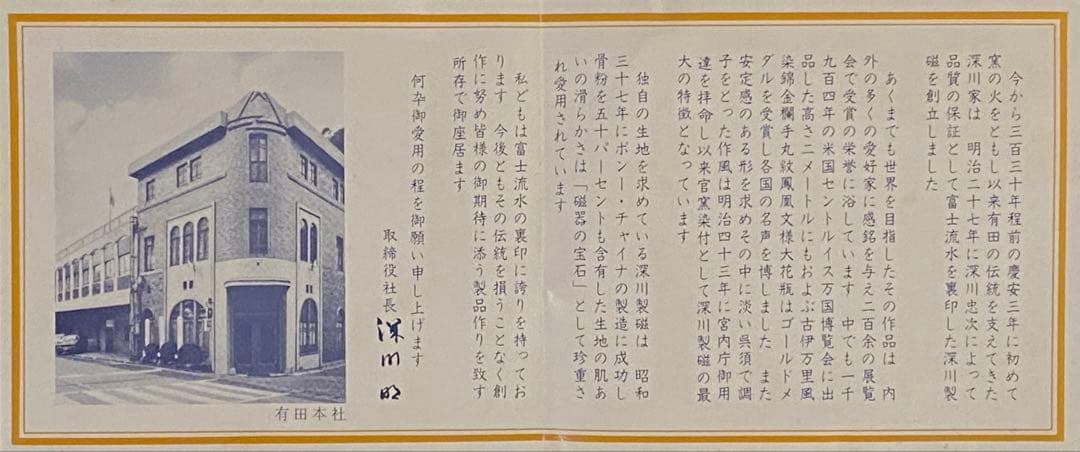 今から三百三十年程前の慶安三年に初めて
窯の火をともし以来有田の伝統を支えてきた
深川家は　明治二十七年に深川忠次によって
品質の保証として富士流水を裏印した深川製
磁を創立しました
あくまでも世界を目指したその作品は　内
外の多くの愛好家に感銘を与え二百余の展覧
会で受賞の栄誉に浴しています　中でも一千
九百四年の米国セントルイス万国博覧会に出
品した高さ二メートルにもおよぶ古伊万里風
染錦金襴手丸紋鳳凰文様大花瓶はゴールドメ
ダルを受賞し各国の名声を博しました　また
安定感のある形を求めその中に淡い呉須で調
子をとった作風は明治四十三年に宮内庁御用
達を拝命し以来官窯染付として深川製磁の最
大の特徴となっています
独自の生地を求めている深川製磁は　昭和
三十七年にボン－・チャイナの製造に成功し
骨粉を五十パーセントも含有した生地の肌あ
いの滑らかさは「磁器の宝石」として珍重さ
れ愛用されています
私どもは富士流水の裏印に誇りを持ってお
ります　今後ともその伝統を損うことなく創
作に努め皆様の御期待に添う製品作りを致す
所存で御座居ます
何卆御愛用の程を御願い申し上げます
取締役社長　深川明
有田本社